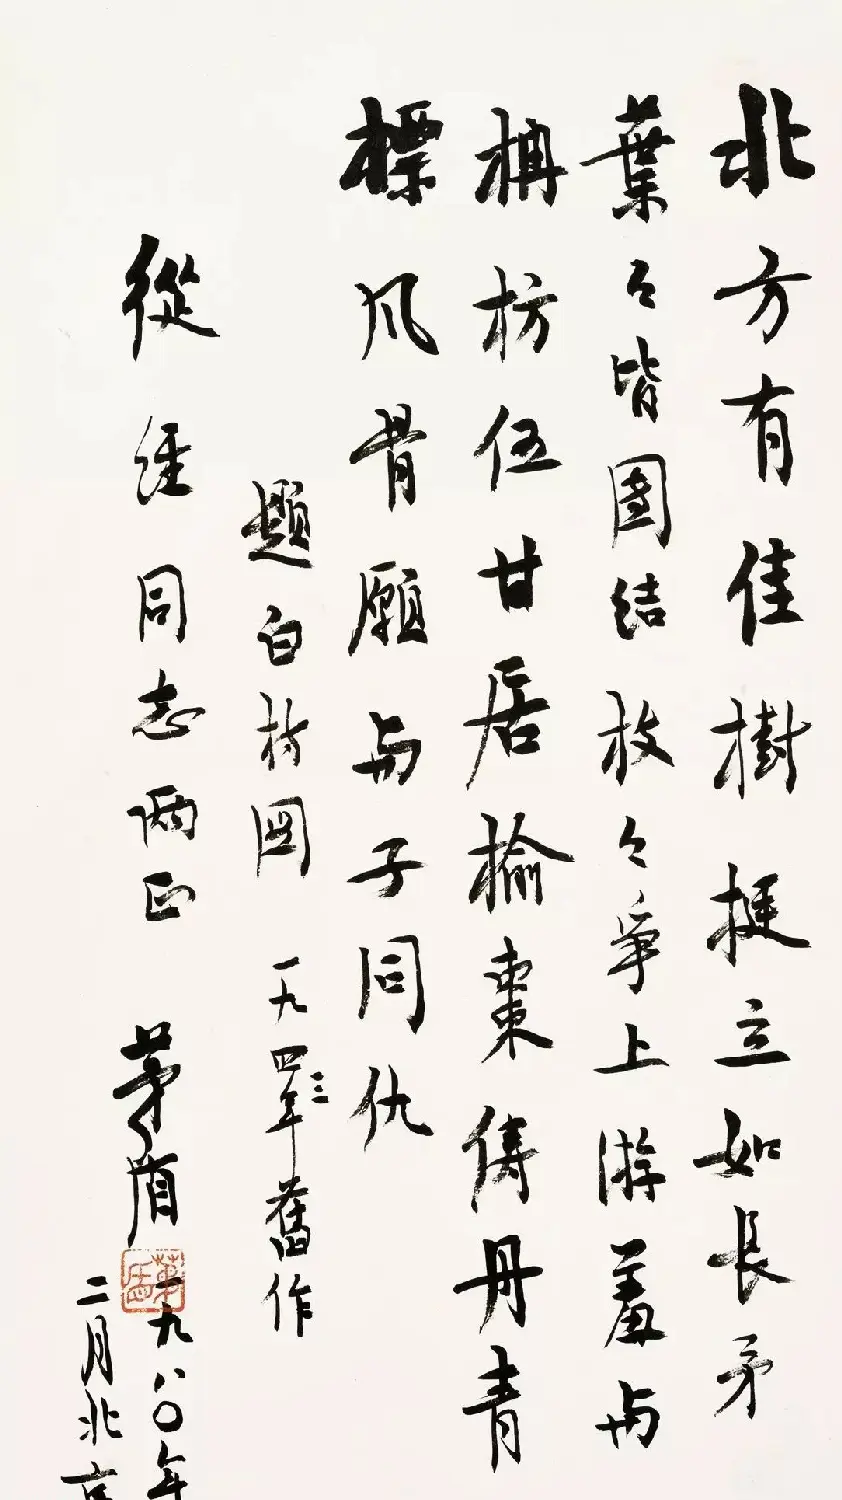 北方有佳樹挺立如長矛
葉々皆團結枝々爭上游羞与
楠枋伍甘居榆棗儔丹青
標风骨願与子同仇
題白楊圖 一九四三年舊作
從經同志兩正 茅盾
一九八〇年
二月北京